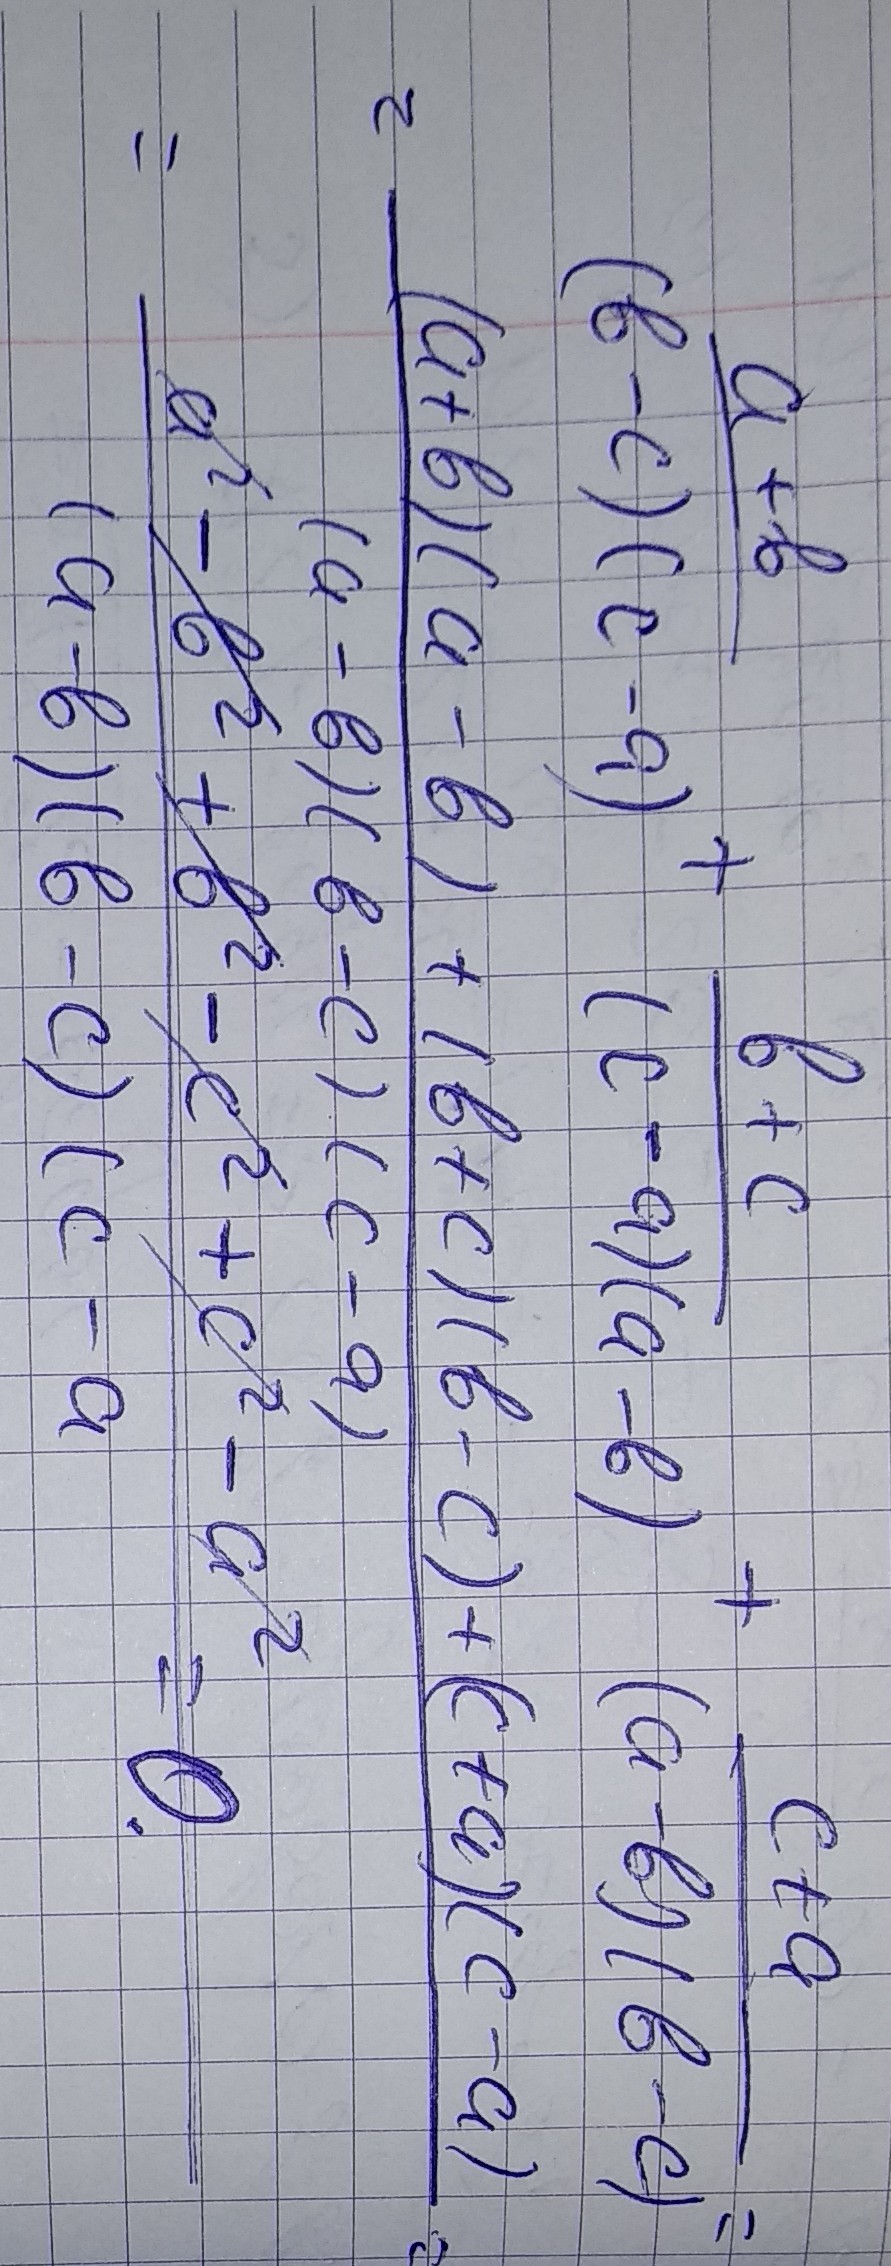 a+b/(b-c)(c-a) + b+c/(c-a)(a-b) + c+a/(a-b)(b-c) =
= (a+b)(a-b)+(b+c)(b-c)+(c+a)(c-a)/(a-b)(b-c)(c-a) =
= a²-b²+b²-c²+c²-a²/(a-b)(b-c)(c-a = 0.